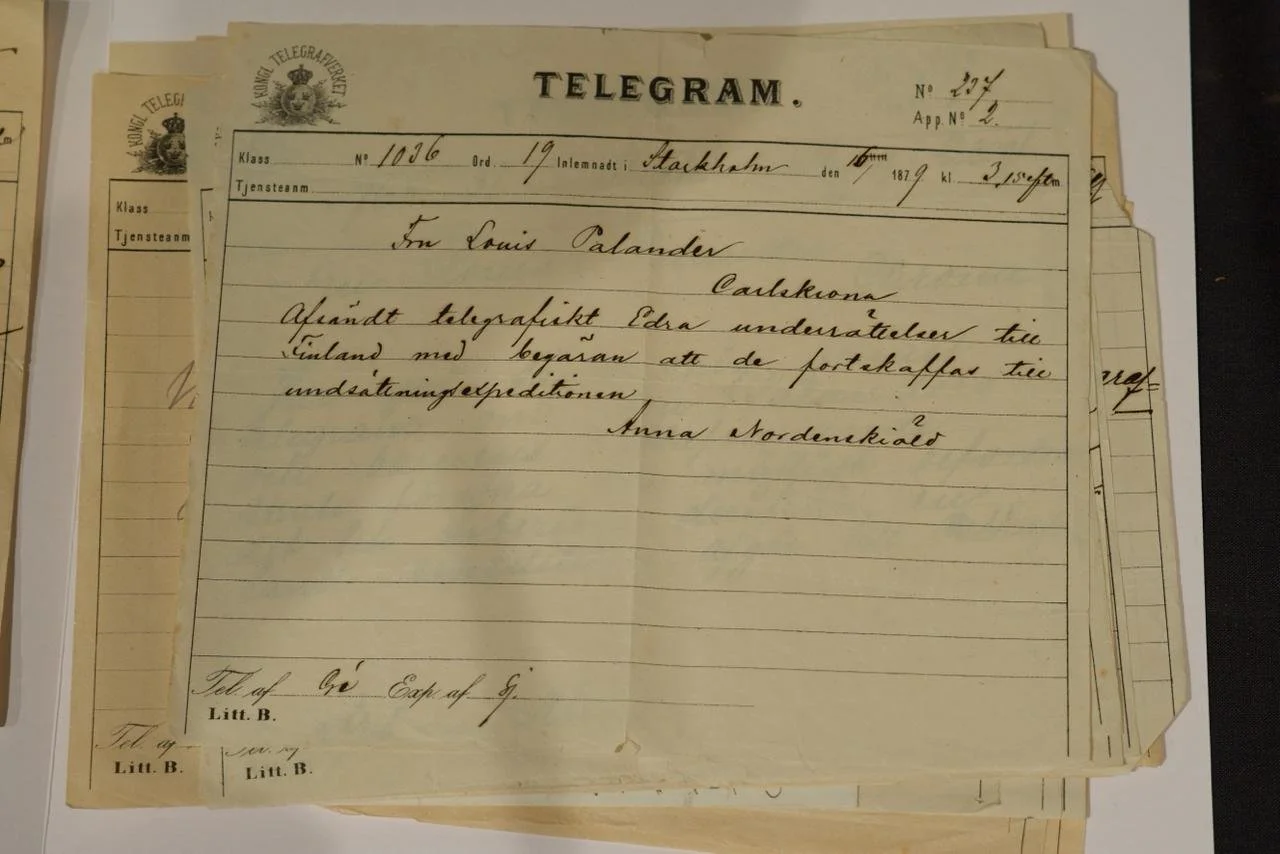 KONGL. TELEGRAFVERKET
TELEGRAM.
No 237
App. No 2.
Klass No 1036 Ord. 19 Inlemnadt i Stockholm den 1879 kl. 3,15 eftm
Tjensteanm.
Fru Louis Palander
Carlskrona
Afsändt telegrafiskt Edra underrättelser till
Finland med begäran att de fortskaffas till
undsättningsexpeditionen
Anna Nordenskiöld
Tel. af Exp. af
Litt. B.
KONGL. TELEGR
Klass
Tjensteanm
Tel. af
Litt. B.
Litt. B.